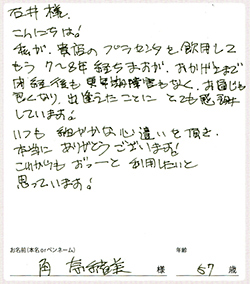 石井 様、
こんにちは!
私が、貴店のプラセンタを飲用して
もう 7〜8年経ちますが、おかげさまで
閉経後も更年期障害もなく、お肌も
白くなり、出逢えたことにとても感謝
しています!
いつも細やかな心遣いを頂き、
本当にありがとうございます!
これからもずーっと利用したいと
思っています!
お名前(本名orペンネーム) 年齢
角 奈緒美 様 57 歳